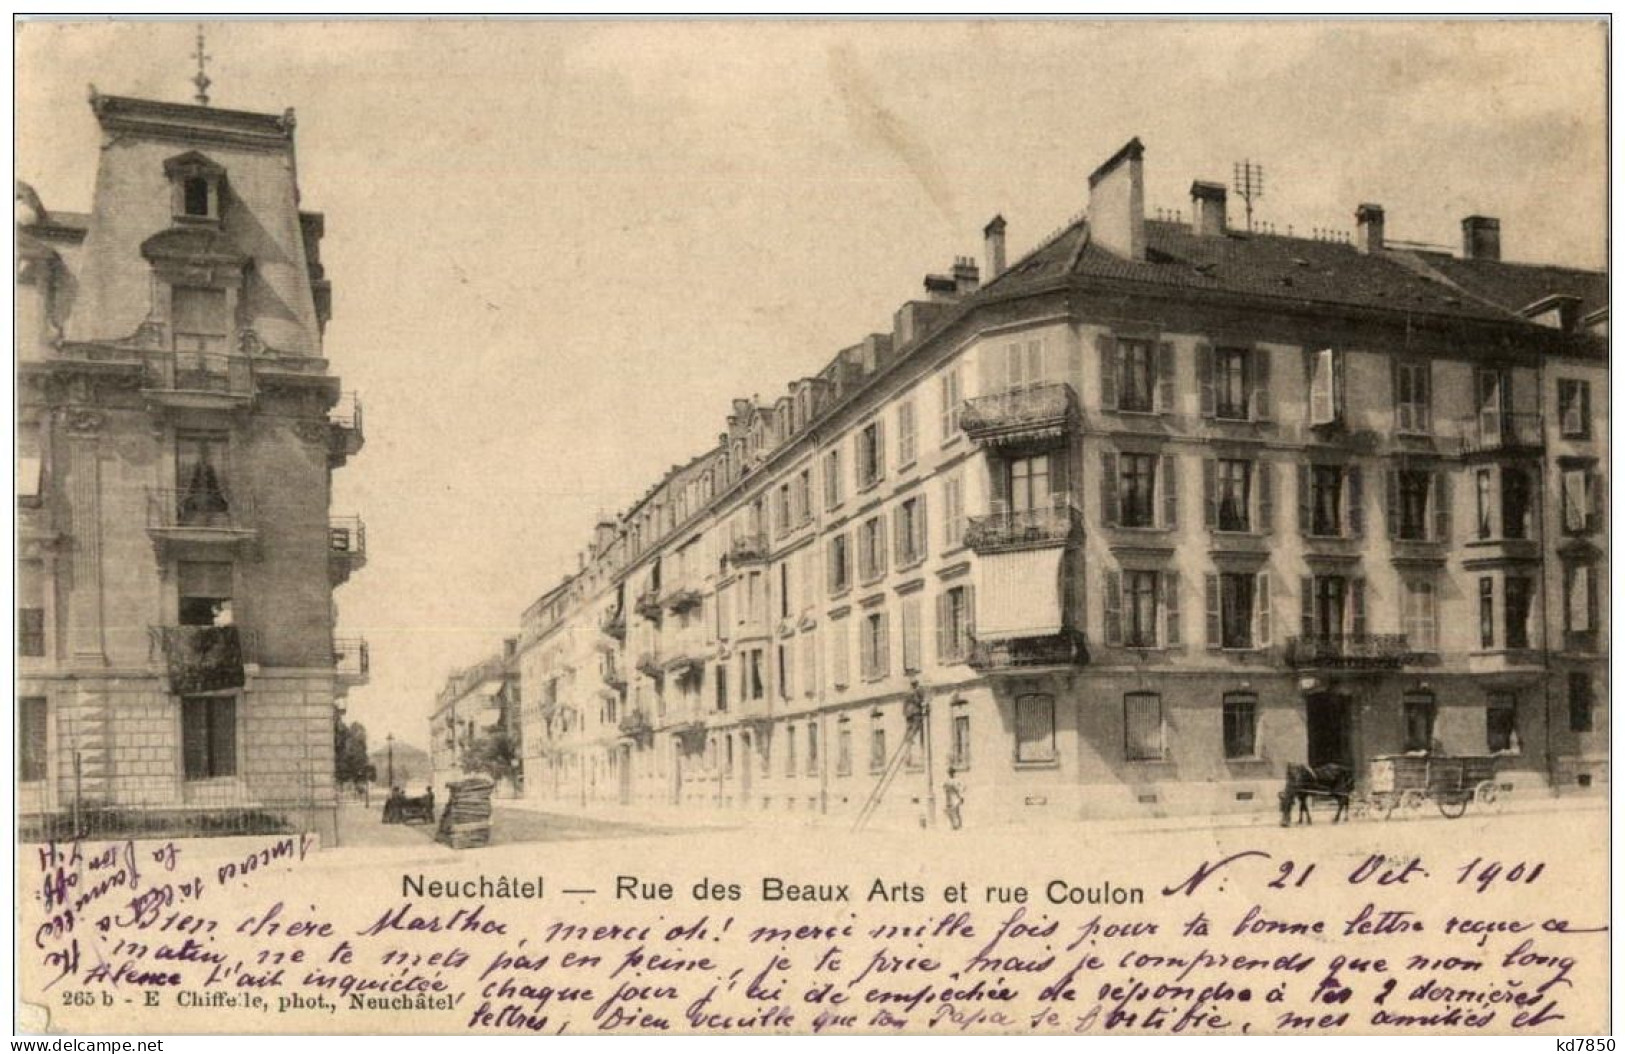 Neuchâtel — Rue des Beaux Arts et rue Coulon
N. 21 Oct. 1901
Bien chère Martha, merci oh! merci mille fois pour ta bonne lettre reçue ce
matin, ne te mets pas en peine, je te prie, mais je comprends que mon long
silence t'ait inquiétée, chaque jour j'ai été empêchée de répondre à tes 2 dernières
lettres, Dieu veuille que ton Papa se fortifie, mes amitiés et
sincères
à la famille
265 b - E Chiffelle, phot., Neuchâtel
kd7850